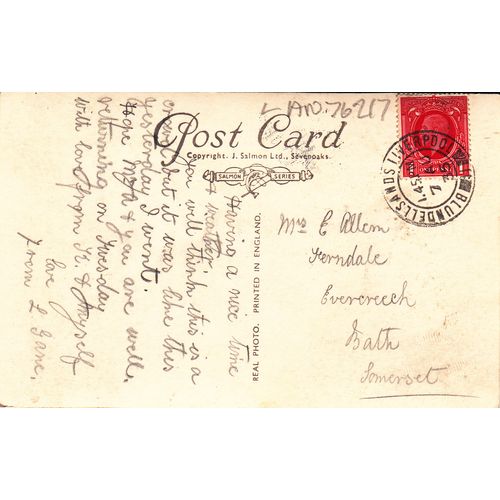 LAND.76217
Post Card
Copyright. J. Salmon Ltd., Sevenoaks.
SALMON SERIES
REAL PHOTO. PRINTED IN ENGLAND.
BLUNDELLSANDS LIVERPOOL
Having a nice time
& weather
you will think this is a
but it was like this
yesterday I went.
Hope Mr & you are well.
returning on Tuesday
with love from &  Myself
love
from L
Mrs E Allem
Ferndale
Evercreech
Bath
Somerset.